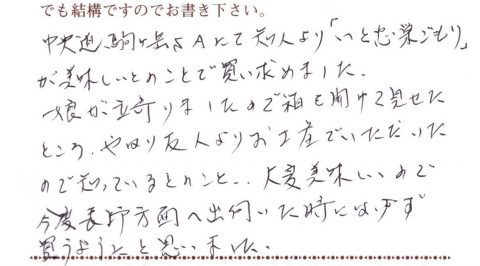 でも結構ですのでお書き下さい。
中央道駒ヶ岳SAにて知人より「いつと忠巣ごもり」
が美味しいとのことで買い求めました。
娘が立寄りましたので箱を開けて見せた
ところ、やはり友人よりお土産でいただいた
ので知っているとのこと、、大変美味しいので
今度長野方面へ出向いた時には必ず
買うようにと思いました。